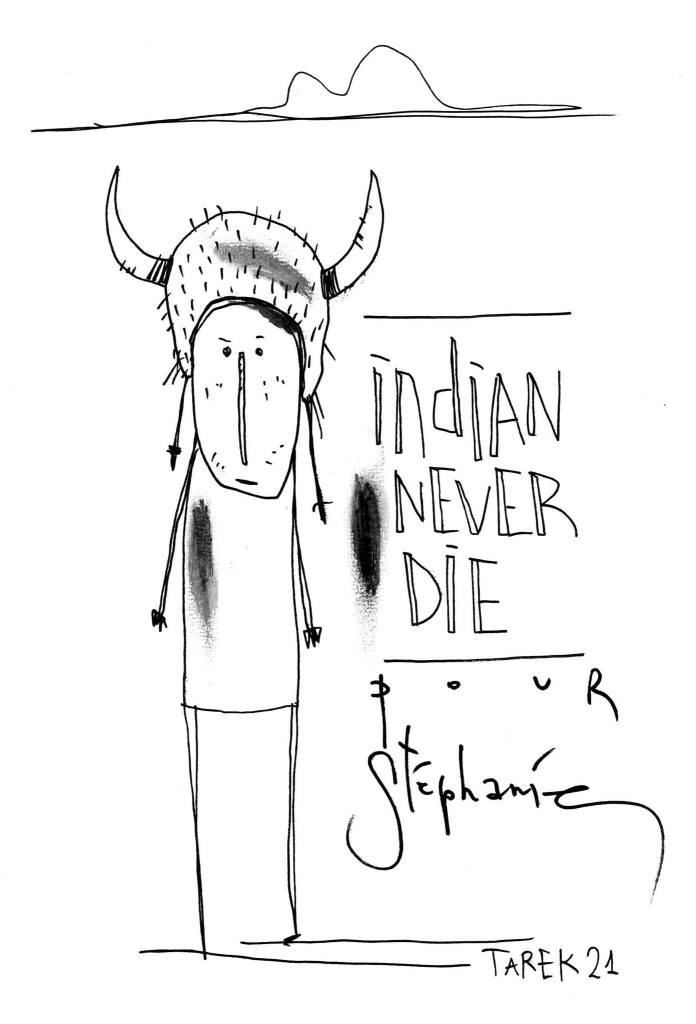 indiAN
NEVER
DiE
pouR
Stéphanie
TAREK 21